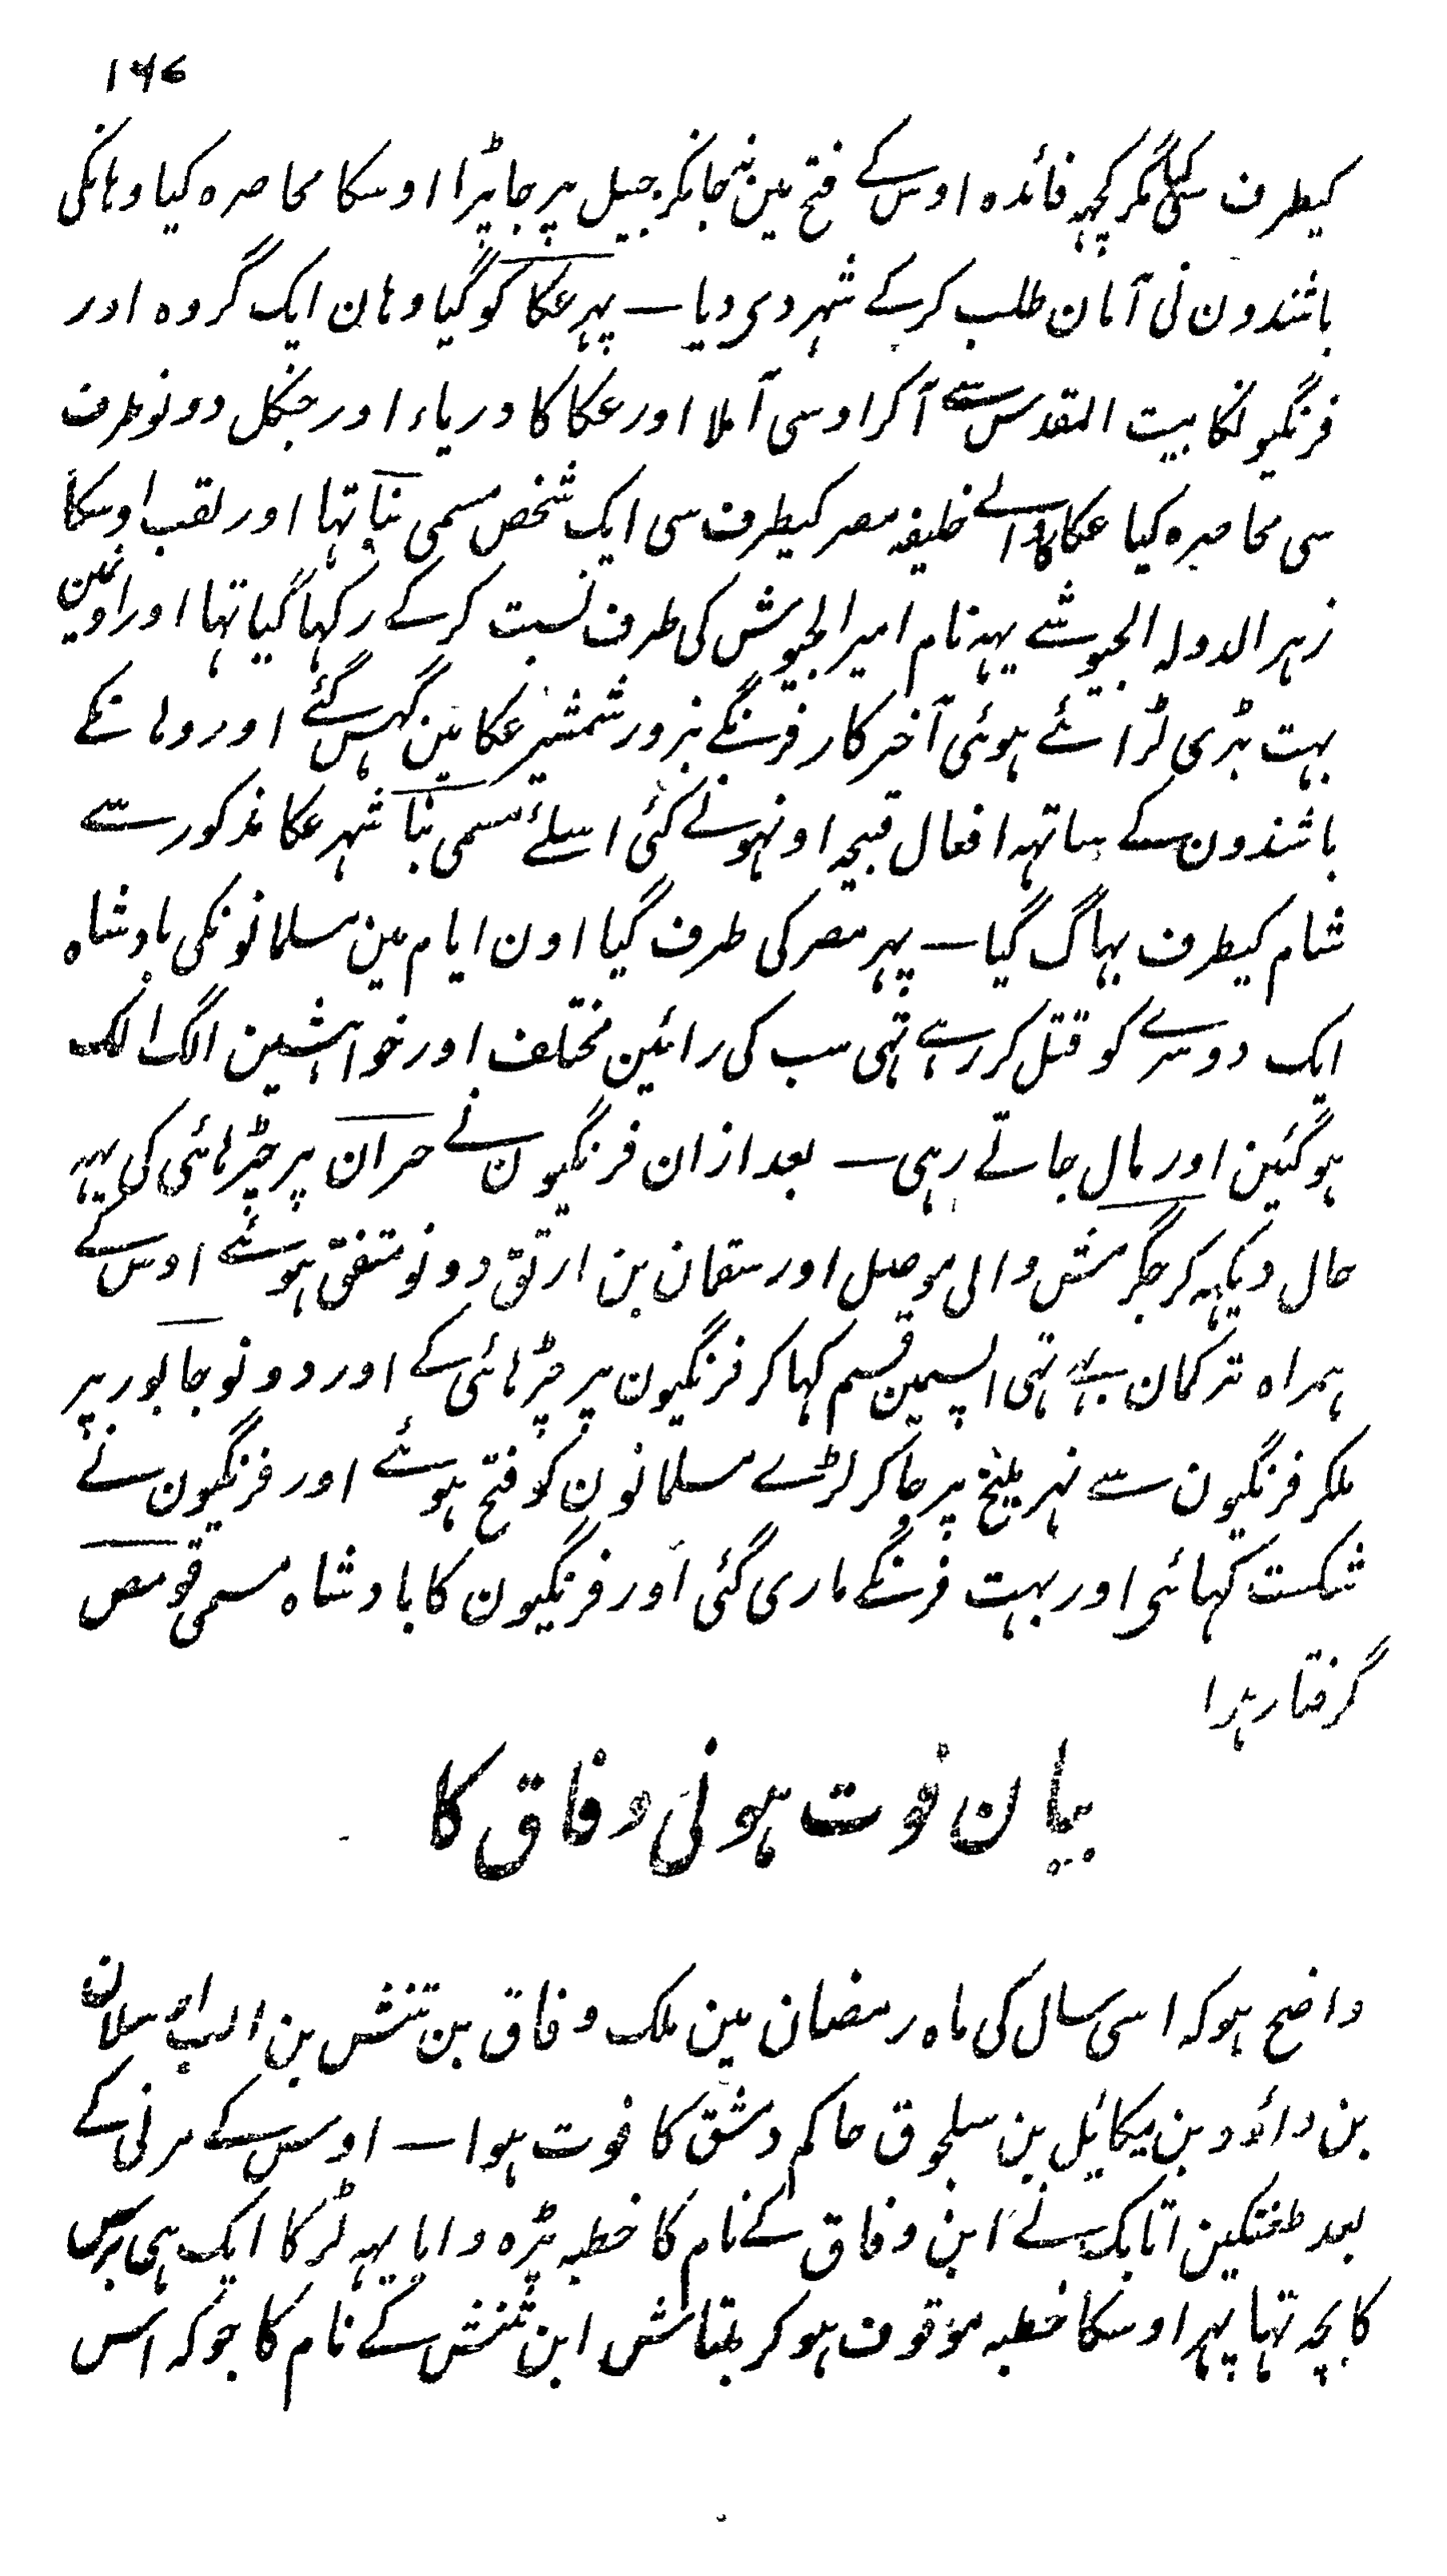 ۱۴۶
کیطرف گیا مگر کچہہ فائدہ اوس کے فتح مین نجانکر جبیل پر جا پڑا اوسکا محاصرہ کیا وہانکی
باشندون نی آمان طلب کرکے شہر دی دیا — پہر عکا کو گیا وہان ایک گروہ اور
فرنگیونکا بیت المقدس سے آکر اوسی آملا اور عکا کا دریاء اور جنگل دونو طرف
سی محاصرہ کیا عکا کا والے خلیفہ مصر کیطرف سی ایک شخص مسمی بنا تہا اور لقب اوسکا
زہر الدولہ الجیوشے یہہ نام امیر الجیوش کی طرف نسبت کرکے رکہا گیا تہا اور اونمین
بہت بڑی لڑائے ہوئی آخر کار فرنگے بزور شمشیر عکا مین گہس گئے اور وہانکے
باشندون کے ساتہہ افعال قبیحہ اونہونے کئی اسلئے مسمی بنا شہر عکا مذکور سے
شام کیطرف بہاگ گیا — پہر مصر کی طرف گیا اون ایام مین مسلمانونکی بادشاہ
ایک دوسرے کو قتل کر رہے تہی سب کی رائین مختلف اور خواہشین الگ الگ
ہوگئین اور مال جاتے رہی — بعد ازان فرنگیون نے حران پر چڑہائی کی یہہ
حال دیکہہ کر جکرمش والی موصل اور سقمان بن ارتق دونو متفق ہوئے اوس کے
ہمراہ ترکمان بہے تہی اپسمین قسم کہا کر فرنگیون پر چڑہائی کے اور دونو جابور پر
ملکر فرنگیون سے نہر بلیخ پر جا کر لڑے مسلمانون کو فتح ہوئے اور فرنگیون نے
شکست کہائی اور بہت فرنگے ماری گئی اور فرنگیون کا بادشاہ مسمی قومص
گرفتار ہوا
بیان فوت ہونی دقاق کا
واضح ہو کہ اسی سال کی ماہ رمضان مین ملک دقاق بن تتش بن الپ ارسلان
بن دائود بن میکائیل بن سلجوق حاکم دمشق کا فوت ہوا — اوس کے مرنی کے
بعد طغتکین اتابک نے ابن دقاق کے نام کا خطبہ پڑہ وایا یہہ لڑکا ایک ہی برس
کا بچہ تہا پہر اوسکا خطبہ موقوف ہو کر بقتاش ابن تتش کے نام کا جو کہ اس